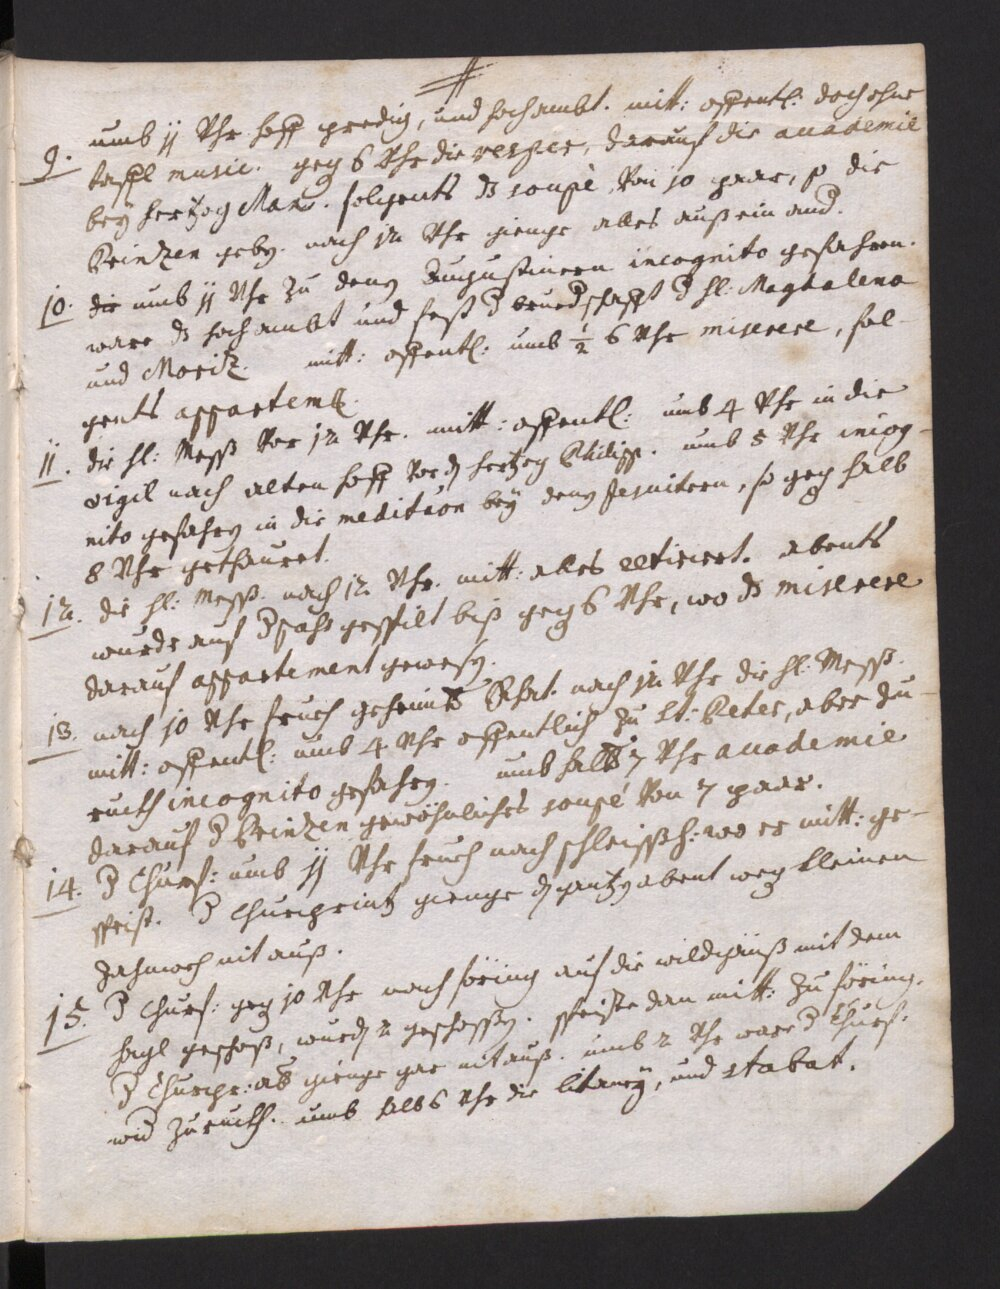 #
9. umb 11 Uhr hoff predig, und hochambt. mitt: offentl: doch ohne
taffl music. geg 6 Uhr die vesper, darauf die accademie
bey hertzog Max. folgents dz soupé von 10 paar, so die
Prinzen geben. nach 12 Uhr gienge alles auß ein and.
10. die umb 11 Uhr zu denen Augustinern incognito gefahren.
ware dz hochambt und fest d bruedschafft d hl: Magdalena
und Moritz. mitt: offentl: umb ½ 6 Uhr miserere, fol-
gents appartemt.
11. die hl: Mess vor 12 Uhr. mitt: offentl: umb 4 Uhr in die
vigil nach alten hoff vor dn hertzog Philipp. umb 5 Uhr incog-
nito gefahren in die meditaon bey denen Jesuitern, so geg halb
8 Uhr gethauret.
12. die hl: Mess. nach 12 Uhr. mitt: alles retiriert. abents
wurde auf d pass gespilt biß geg 6 Uhr, wo dz miserere
darauf appartement gewesen.
13. nach 10 Uhr frueh geheimbt Rhat. nach 12 Uhr die hl: Mess.
mitt: offentl: umb 4 Uhr offentlich zu St: Peter, aber zu-
ruckh incognito gefahren. umb halb 7 Uhr accademie
darauf d Prinzen gewöhnliches soupé von 7 paar.
14. d Churf: umb 11 Uhr frueh nach schleissh: wo er mitt: ge-
speist. d Churprintz gienge dn gantzen abent weg kleinen
zahnweh nit auß.
15. d Churf: geg 10 Uhr nach föring auf die wildgänß mit dem
hagl geschoß, wurden 2 geschossen. speiste dan mitt: zu föring.
d Churpr: ab gienge gar nit auß. umb 2 Uhr ware d Churf:
wid zuruckh. umb halb 6 Uhr die litaney, und stabat.